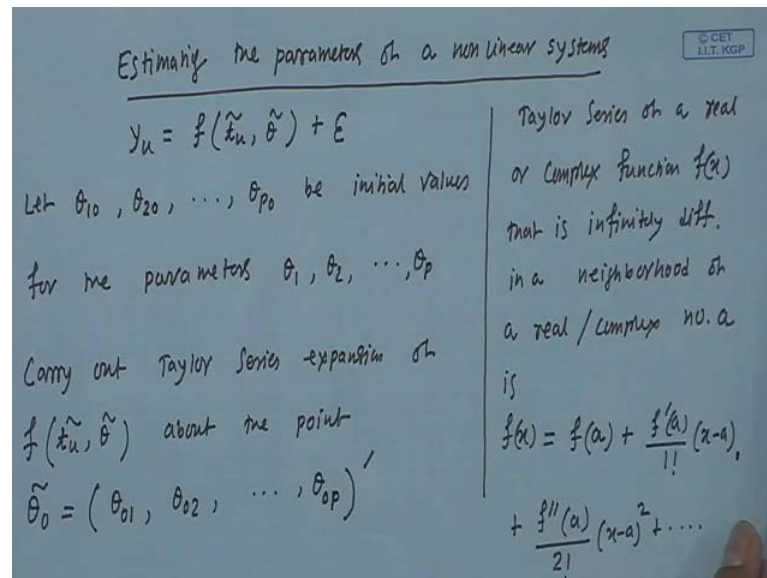 Estimating the parameters of a non linear systems
© CET
I.I.T. KGP
y_u = f(t̃_u, θ̃) + ε
Let θ_10, θ_20, ..., θ_p0 be initial values
for the parameters θ_1, θ_2, ..., θ_p
Carry out Taylor Series expansion of
f(t̃_u, θ̃) about the point
θ̃_0 = (θ_01, θ_02, ..., θ_0p)'
Taylor Series of a real
or Complex function f(x)
that is infinitely diff.
in a neighborhood of
a real / complex no. a
is
f(x) = f(a) + f'(a)/1! (x-a)
+ f''(a)/2! (x-a)^2 + ....